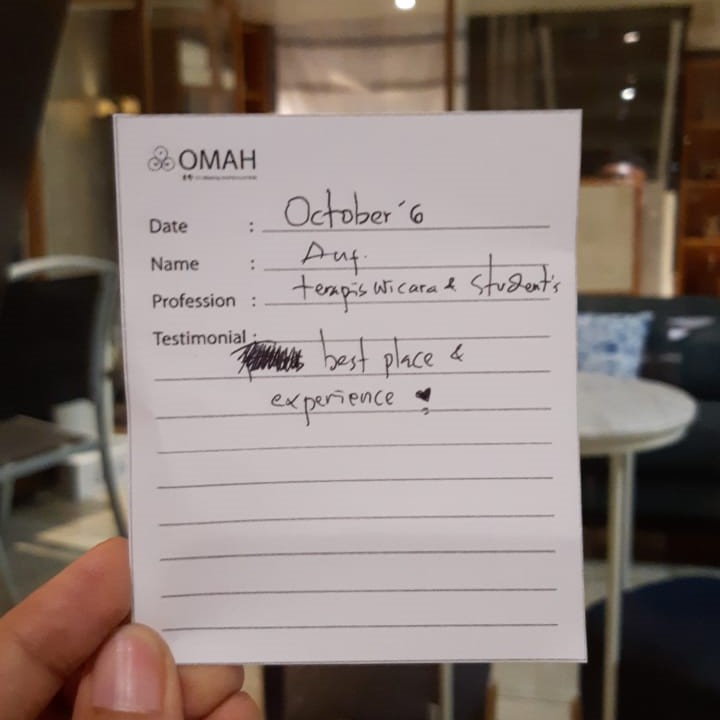 OMAH
Date : October '6
Name : Auf.
Profession : terapis wicara & student's
Testimonial :
best place &
experience